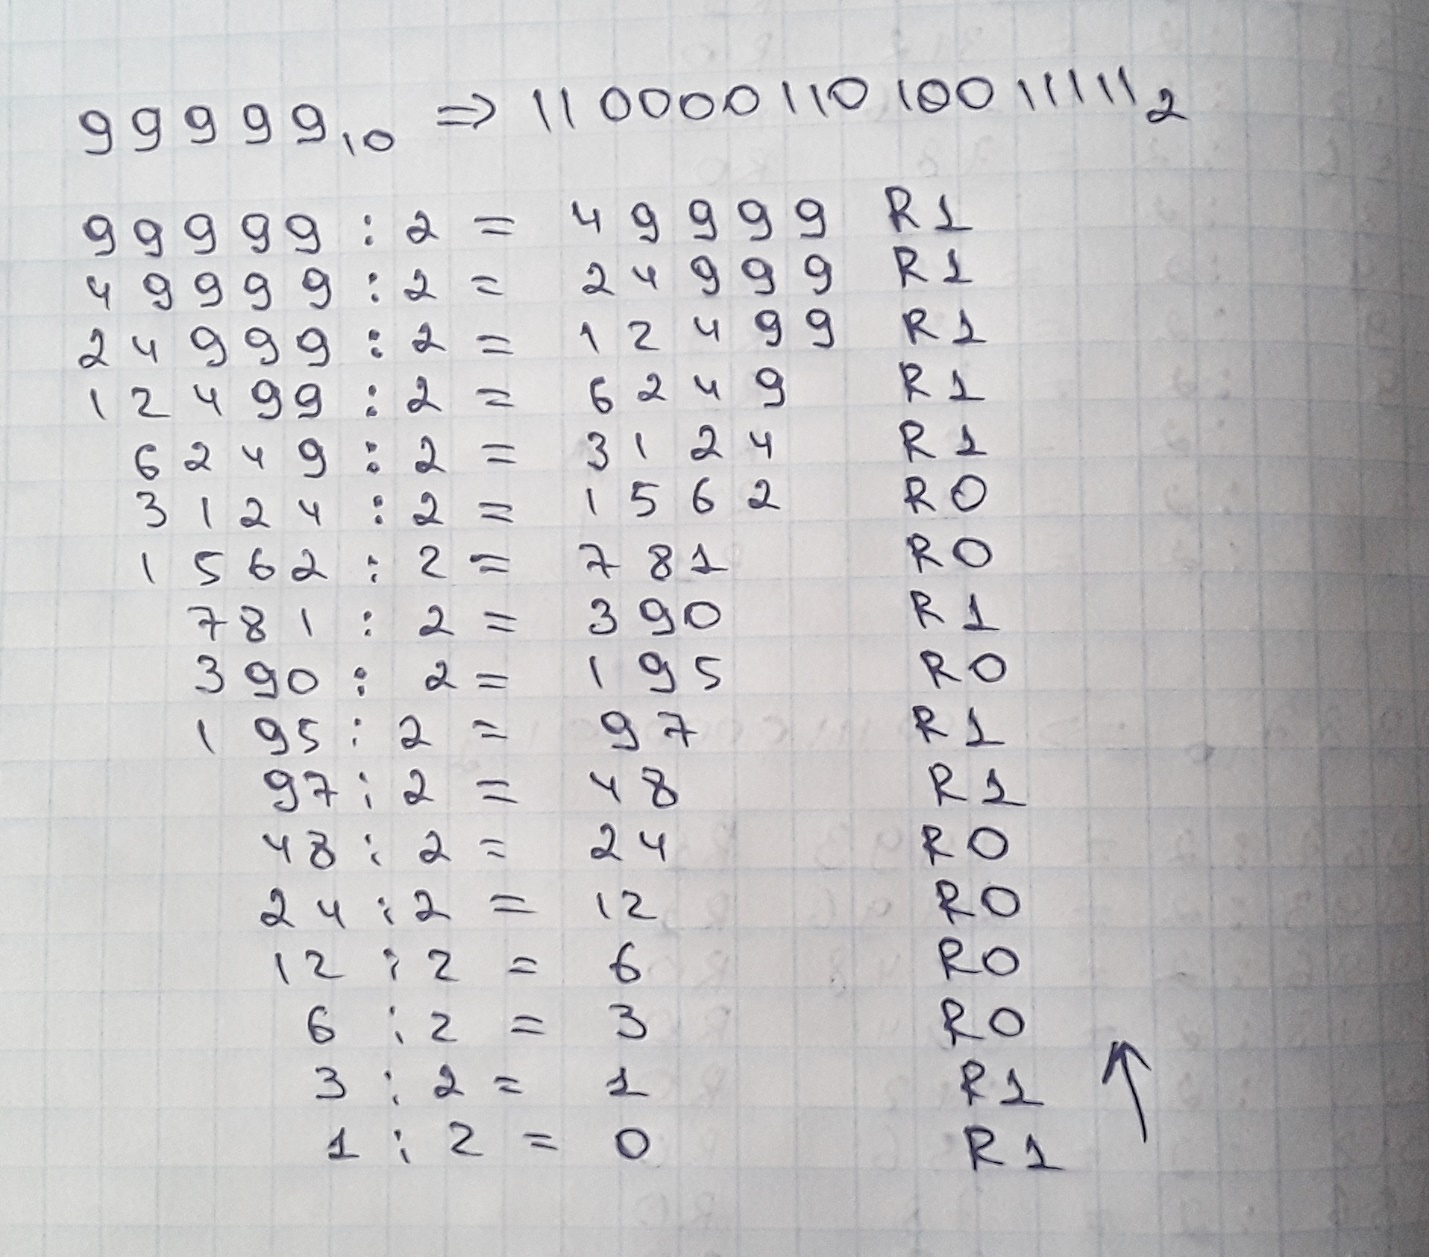 99999₁₀ => 11000011010011111₂
99999 : 2 = 49999 R1
49999 : 2 = 24999 R1
24999 : 2 = 12499 R1
12499 : 2 = 6249 R1
6249 : 2 = 3124 R1
3124 : 2 = 1562 R0
1562 : 2 = 781 R0
781 : 2 = 390 R1
390 : 2 = 195 R0
195 : 2 = 97 R1
97 : 2 = 48 R1
48 : 2 = 24 R0
24 : 2 = 12 R0
12 : 2 = 6 R0
6 : 2 = 3 R0
3 : 2 = 1 R1
1 : 2 = 0 R1